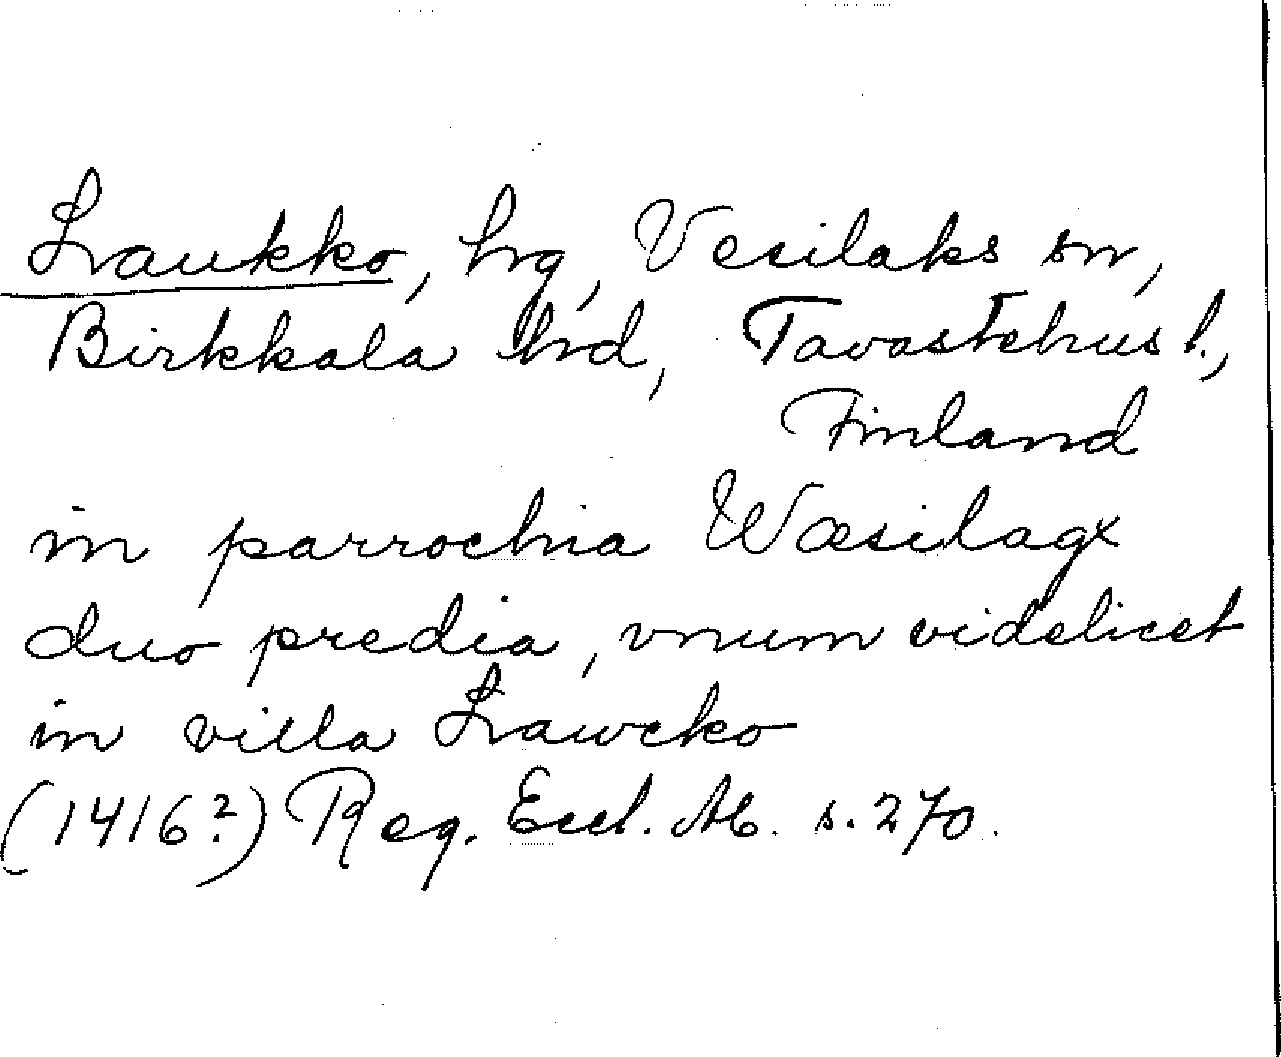 Laukko, hg, Vesilaks sn,
Birkkala hrd, Tavastehus l.,
Finland
in parrochia Wæsilagx
duo predia, vnum videlicet
in villa Lawcko
(1416?) Reg. Eccl. Ab. s. 270.